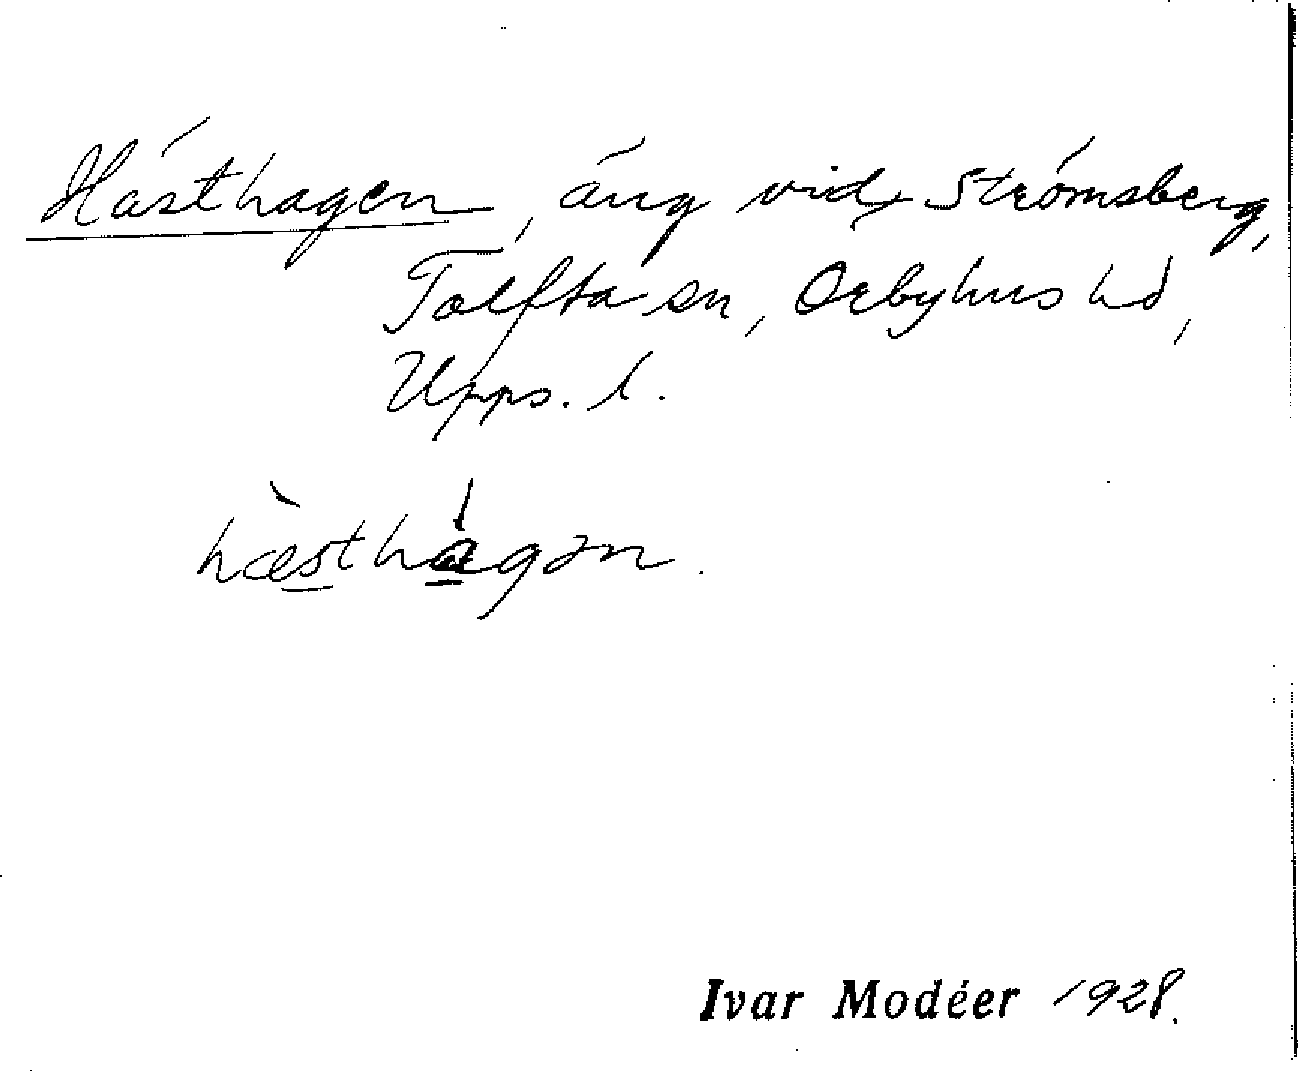 Hästhagen, äng vid Strömsberg,
Tolfta sn, Örbyhus hd,
Upps. l.
hæ̀sthágən.
Ivar Modéer 1928.